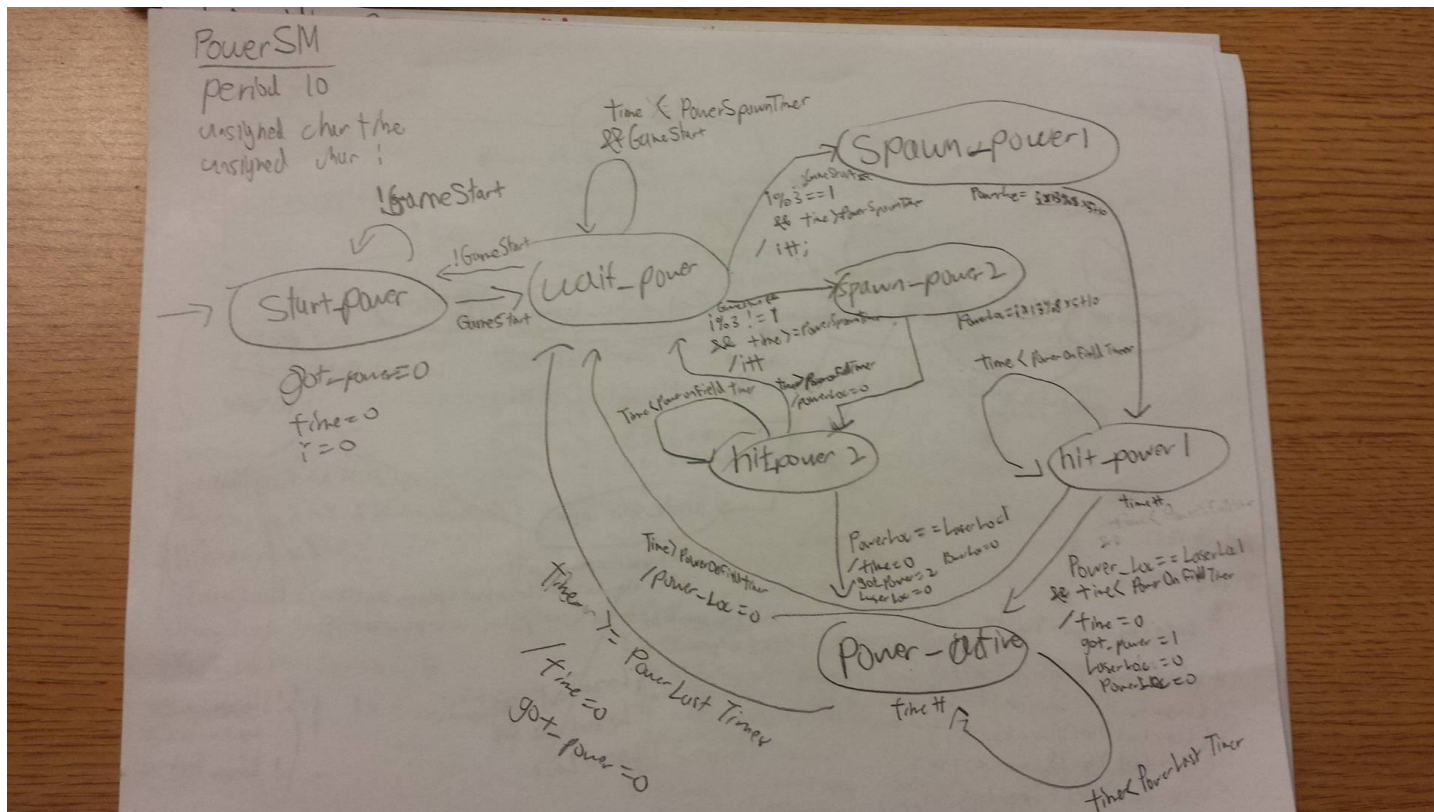 PowerSM
period 10
unsigned char time
unsigned char i
!GameStart
time < PowerSpawnTimer
&& GameStart
Spawn_power1
i%3==1
&& time>PowerSpawnTimer
/ i++;
!GameStart
start_power
GameStart
wait_power
spawn_power2
GameStart
i%3 != 1
&& time>=PowerSpawnTimer
/i++
PowerLoc=i*13%8*5+10
got_power=0
time=0
i=0
Time<PowerOnField Timer
time>PowerOnFieldTimer
/powerLoc=0
Time<PowerOnFieldTimer
hitpower 2
hit_power1
time++
PowerLoc==LaserLoc1
/time=0
got power=2 PowerLoc=0
LaserLoc=0
Time>PowerOnFieldTimer
/power_Loc=0
Power_Loc==LaserLoc1
&& time< PowerOnFieldTimer
/time=0
got_power=1
LaserLoc=0
PowerLoc=0
power_active
time++
time >= PowerLast Timer
/time=0
got_power=0
time<PowerLast Timer